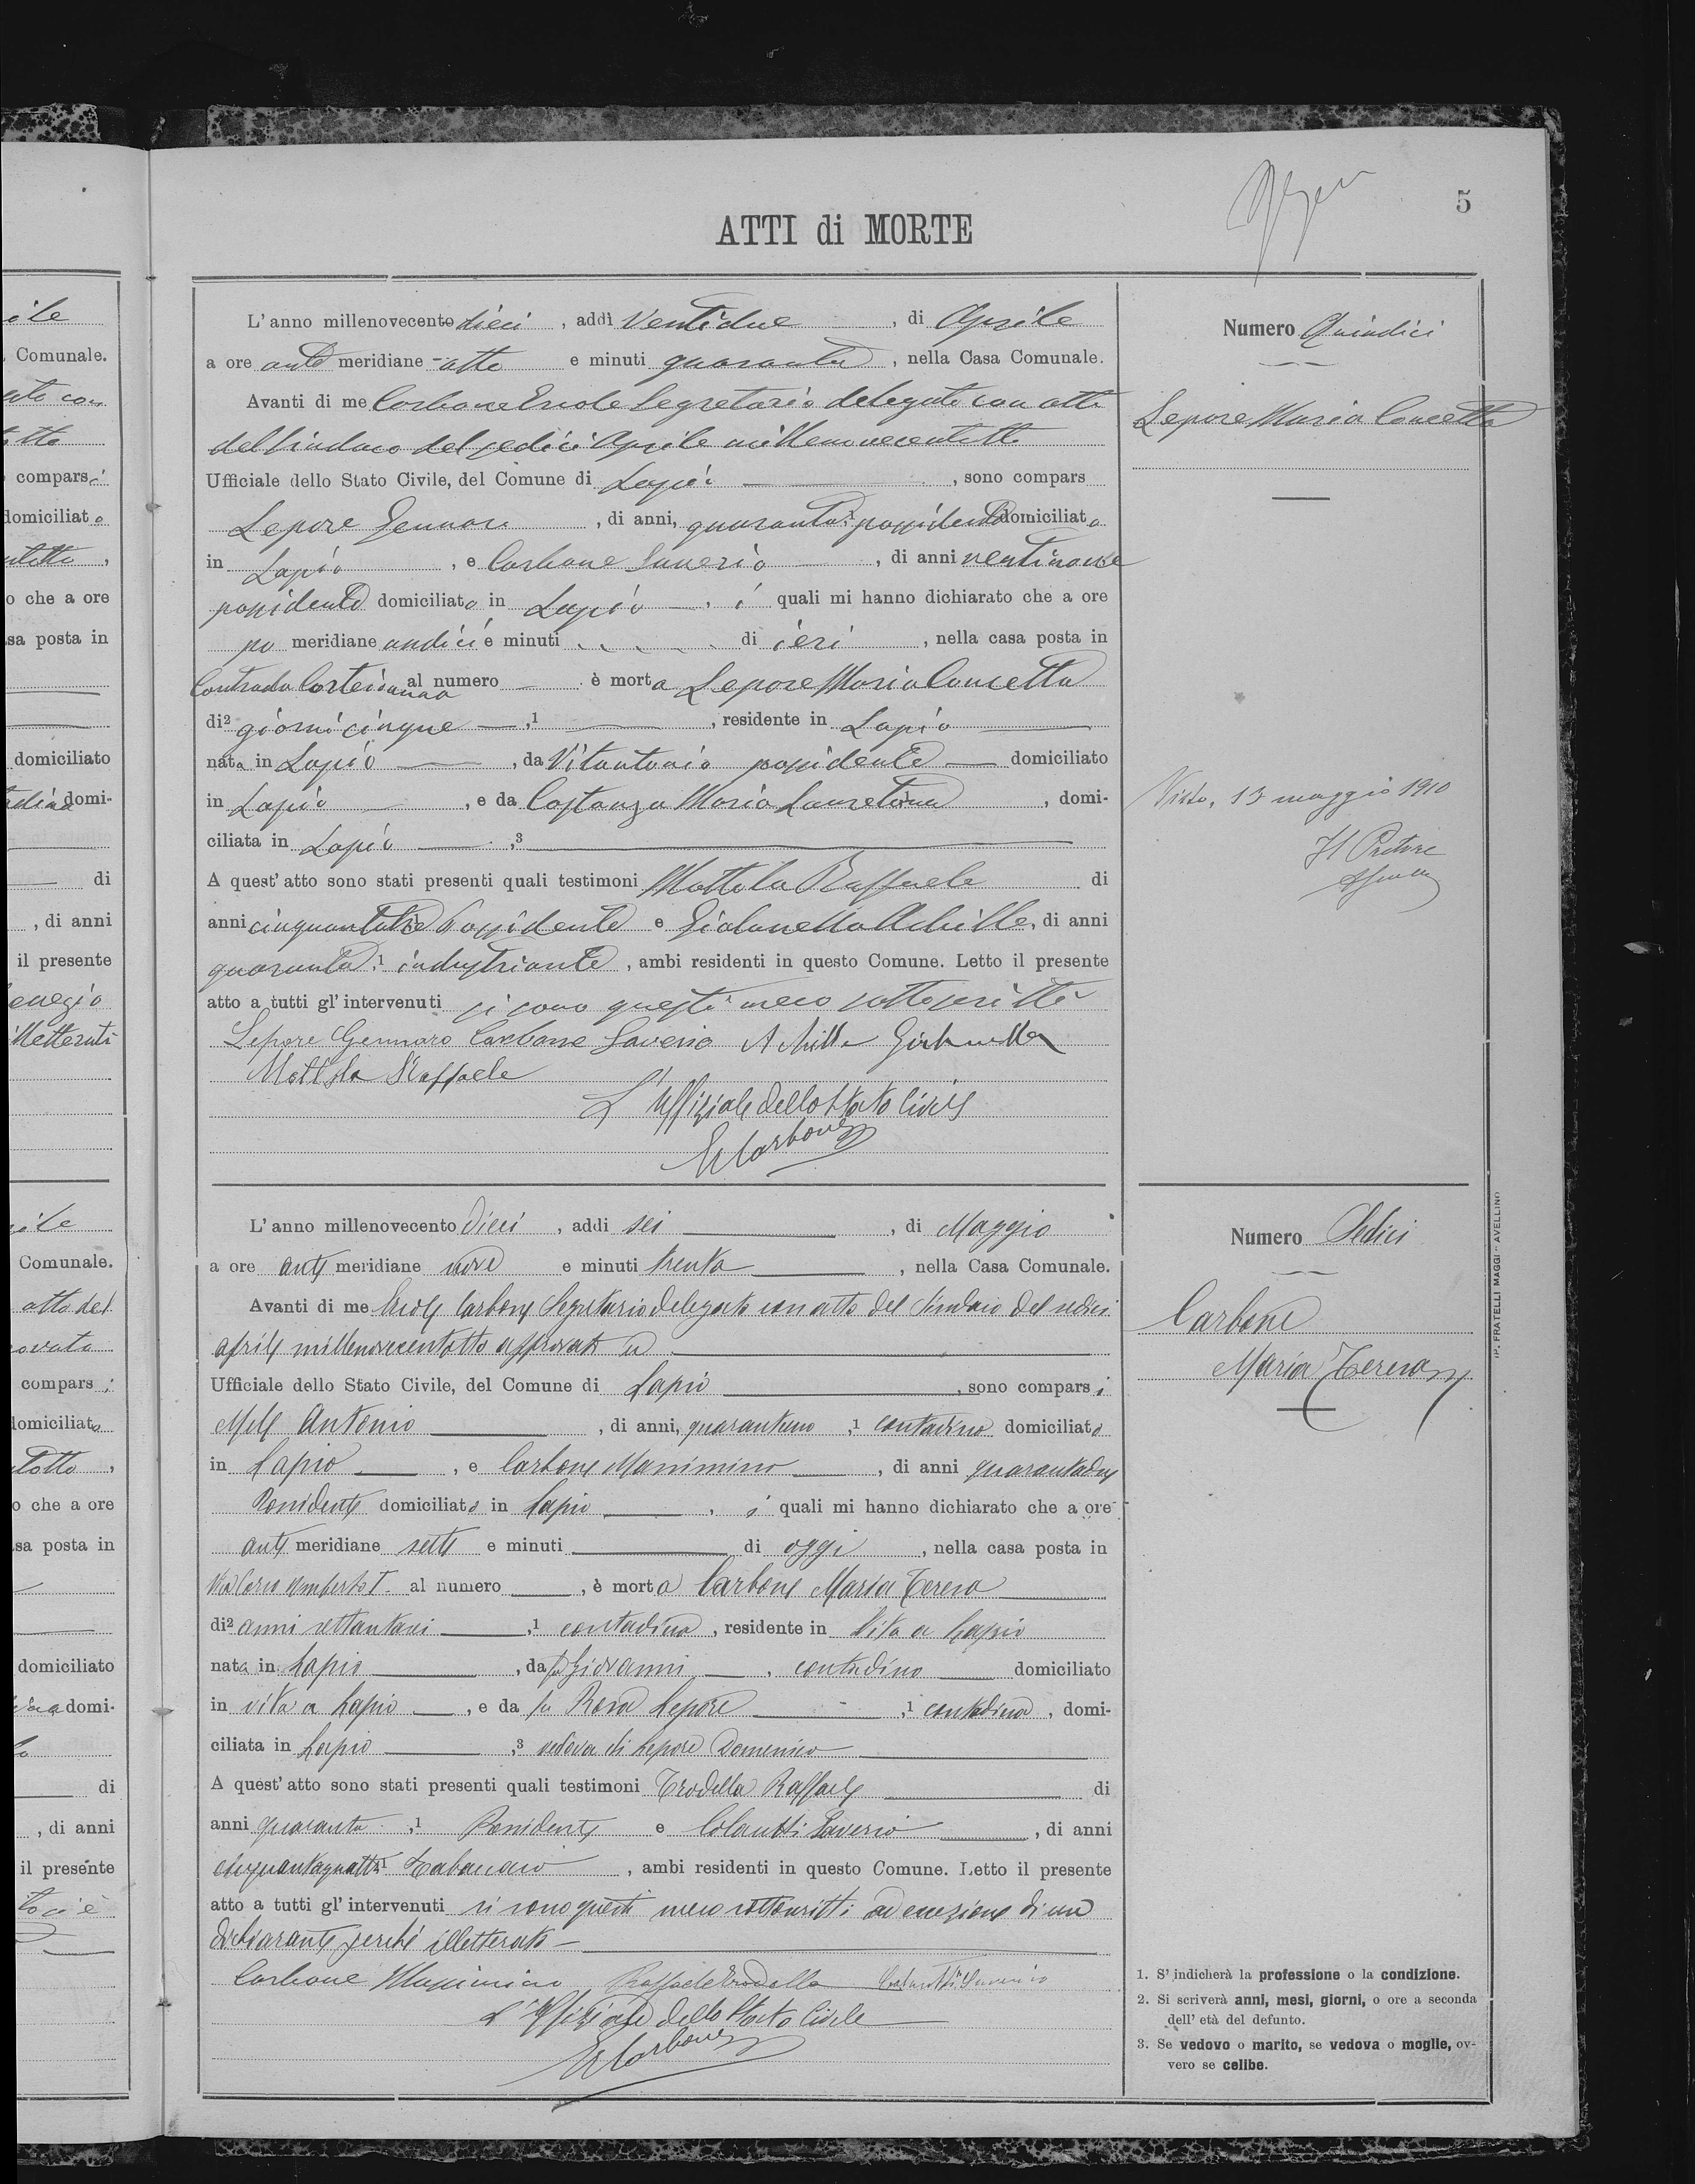 5
ATTI di MORTE
ile
Comunale.
compars i
domiciliato
o che a ore
sa posta in
domiciliato
domi-
di
, di anni
il presente
illetterati
L'anno millenovecento dieci, addì ventidue, di Aprile
a ore ante meridiane otto e minuti quaranta, nella Casa Comunale.
Avanti di me Carbone Ercole Segretario delegato con atto
del Sindaco del sedici Aprile millenovecentotto
Ufficiale dello Stato Civile, del Comune di Lapio, sono compars
Lepore Gennaro, di anni, quaranta, possidente domiciliato
in Lapio, e Carbone Saverio, di anni ventinove
possidente domiciliato in Lapio, i quali mi hanno dichiarato che a ore
po meridiane undici e minuti di ieri, nella casa posta in
Contrada al numero è morta Lepore Maria Concetta
di² giorni cinque,¹ , residente in Lapio
nata in Lapio, da Vitantonio possidente domiciliato
in Lapio, e da Costanza Maria Lauretana, domi-
ciliata in Lapio,³
A quest'atto sono stati presenti quali testimoni Mottola Raffaele di
anni cinquantatre Possidente e Giolonella Achille, di anni
quaranta,¹ industriante, ambi residenti in questo Comune. Letto il presente
atto a tutti gl'intervenuti si sono questi meco sottoscritti
Lepore Gennaro Carbone Saverio Achille
Mottola Raffaele
L'Uffiziale dello Stato Civile
E Carbone
Numero Quindici
Lepore Maria Concetta
Visto, 13 maggio 1910
Il Pretore
ile
Comunale.
atto del
compars i
domiciliato
o che a ore
sa posta in
domiciliato
domi-
di
, di anni
il presente
L'anno millenovecento dieci, addì sei, di Maggio
a ore ante meridiane nove e minuti trenta, nella Casa Comunale.
Avanti di me Ercole Carbone Segretario delegato con atto del Sindaco del sedici
aprile millenovecentotto approvato
Ufficiale dello Stato Civile, del Comune di Lapio, sono comparsi
Mele Antonio, di anni, quarantuno,¹ contadino domiciliato
in Lapio, e Carbone Massimino, di anni quarantadue
Possidente domiciliato in Lapio, i quali mi hanno dichiarato che a ore
ante meridiane sette e minuti di oggi, nella casa posta in
Via Corso Umberto I. al numero, è morta Carbone Maria Teresa
di² anni settantasei,¹ contadina, residente in vita a Lapio
nata in Lapio, da fu Giovanni, contadino domiciliato
in vita a Lapio, e da fu Rosa Lepore,¹ contadina, domi-
ciliata in Lapio,³ vedova di Lepore Domenico
A quest'atto sono stati presenti quali testimoni Trodella Raffaele di
anni quaranta,¹ Possidente e Colantti Saverio, di anni
cinquantaquattro Tabaccaio, ambi residenti in questo Comune. Letto il presente
atto a tutti gl'intervenuti si sono questi meco sottoscritti ad eccezione di un
dichiarante perché illetterato
Carbone Massimino Raffaele Trodella Saverio
L'Uffiziale dello Stato Civile
E Carbone
Numero Sedici
Carbone
Maria Teresa
IP. FRATELLI MAGGI - AVELLINO
1. S'indicherà la professione o la condizione.
2. Si scriverà anni, mesi, giorni, o ore a seconda
dell'età del defunto.
3. Se vedovo o marito, se vedova o moglie, ov-
vero se celibe.